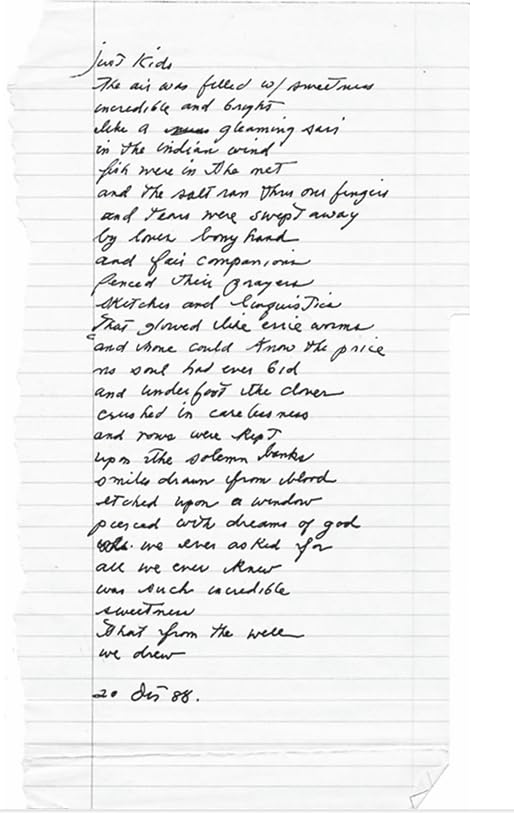 just kids
The air was filled w/ sweetness
incredible and bright
like a gleaming sari
in the indian wind
fish were in the net
and the salt ran thru our fingers
and tears were swept away
by lover bony hand
and fair companions
penced their prayers
sketches and linguistics
that glowed like eerie worms
and none could know the price
no soul had ever bid
and underfoot the clover
crushed in carelessness
and rows were kept
upon the solemn banks
smiles drawn from blood
etched upon a window
pierced with dreams of god
we ever asked for
all we ever knew
was such incredible
sweetness
that from the well
we drew
20 88.